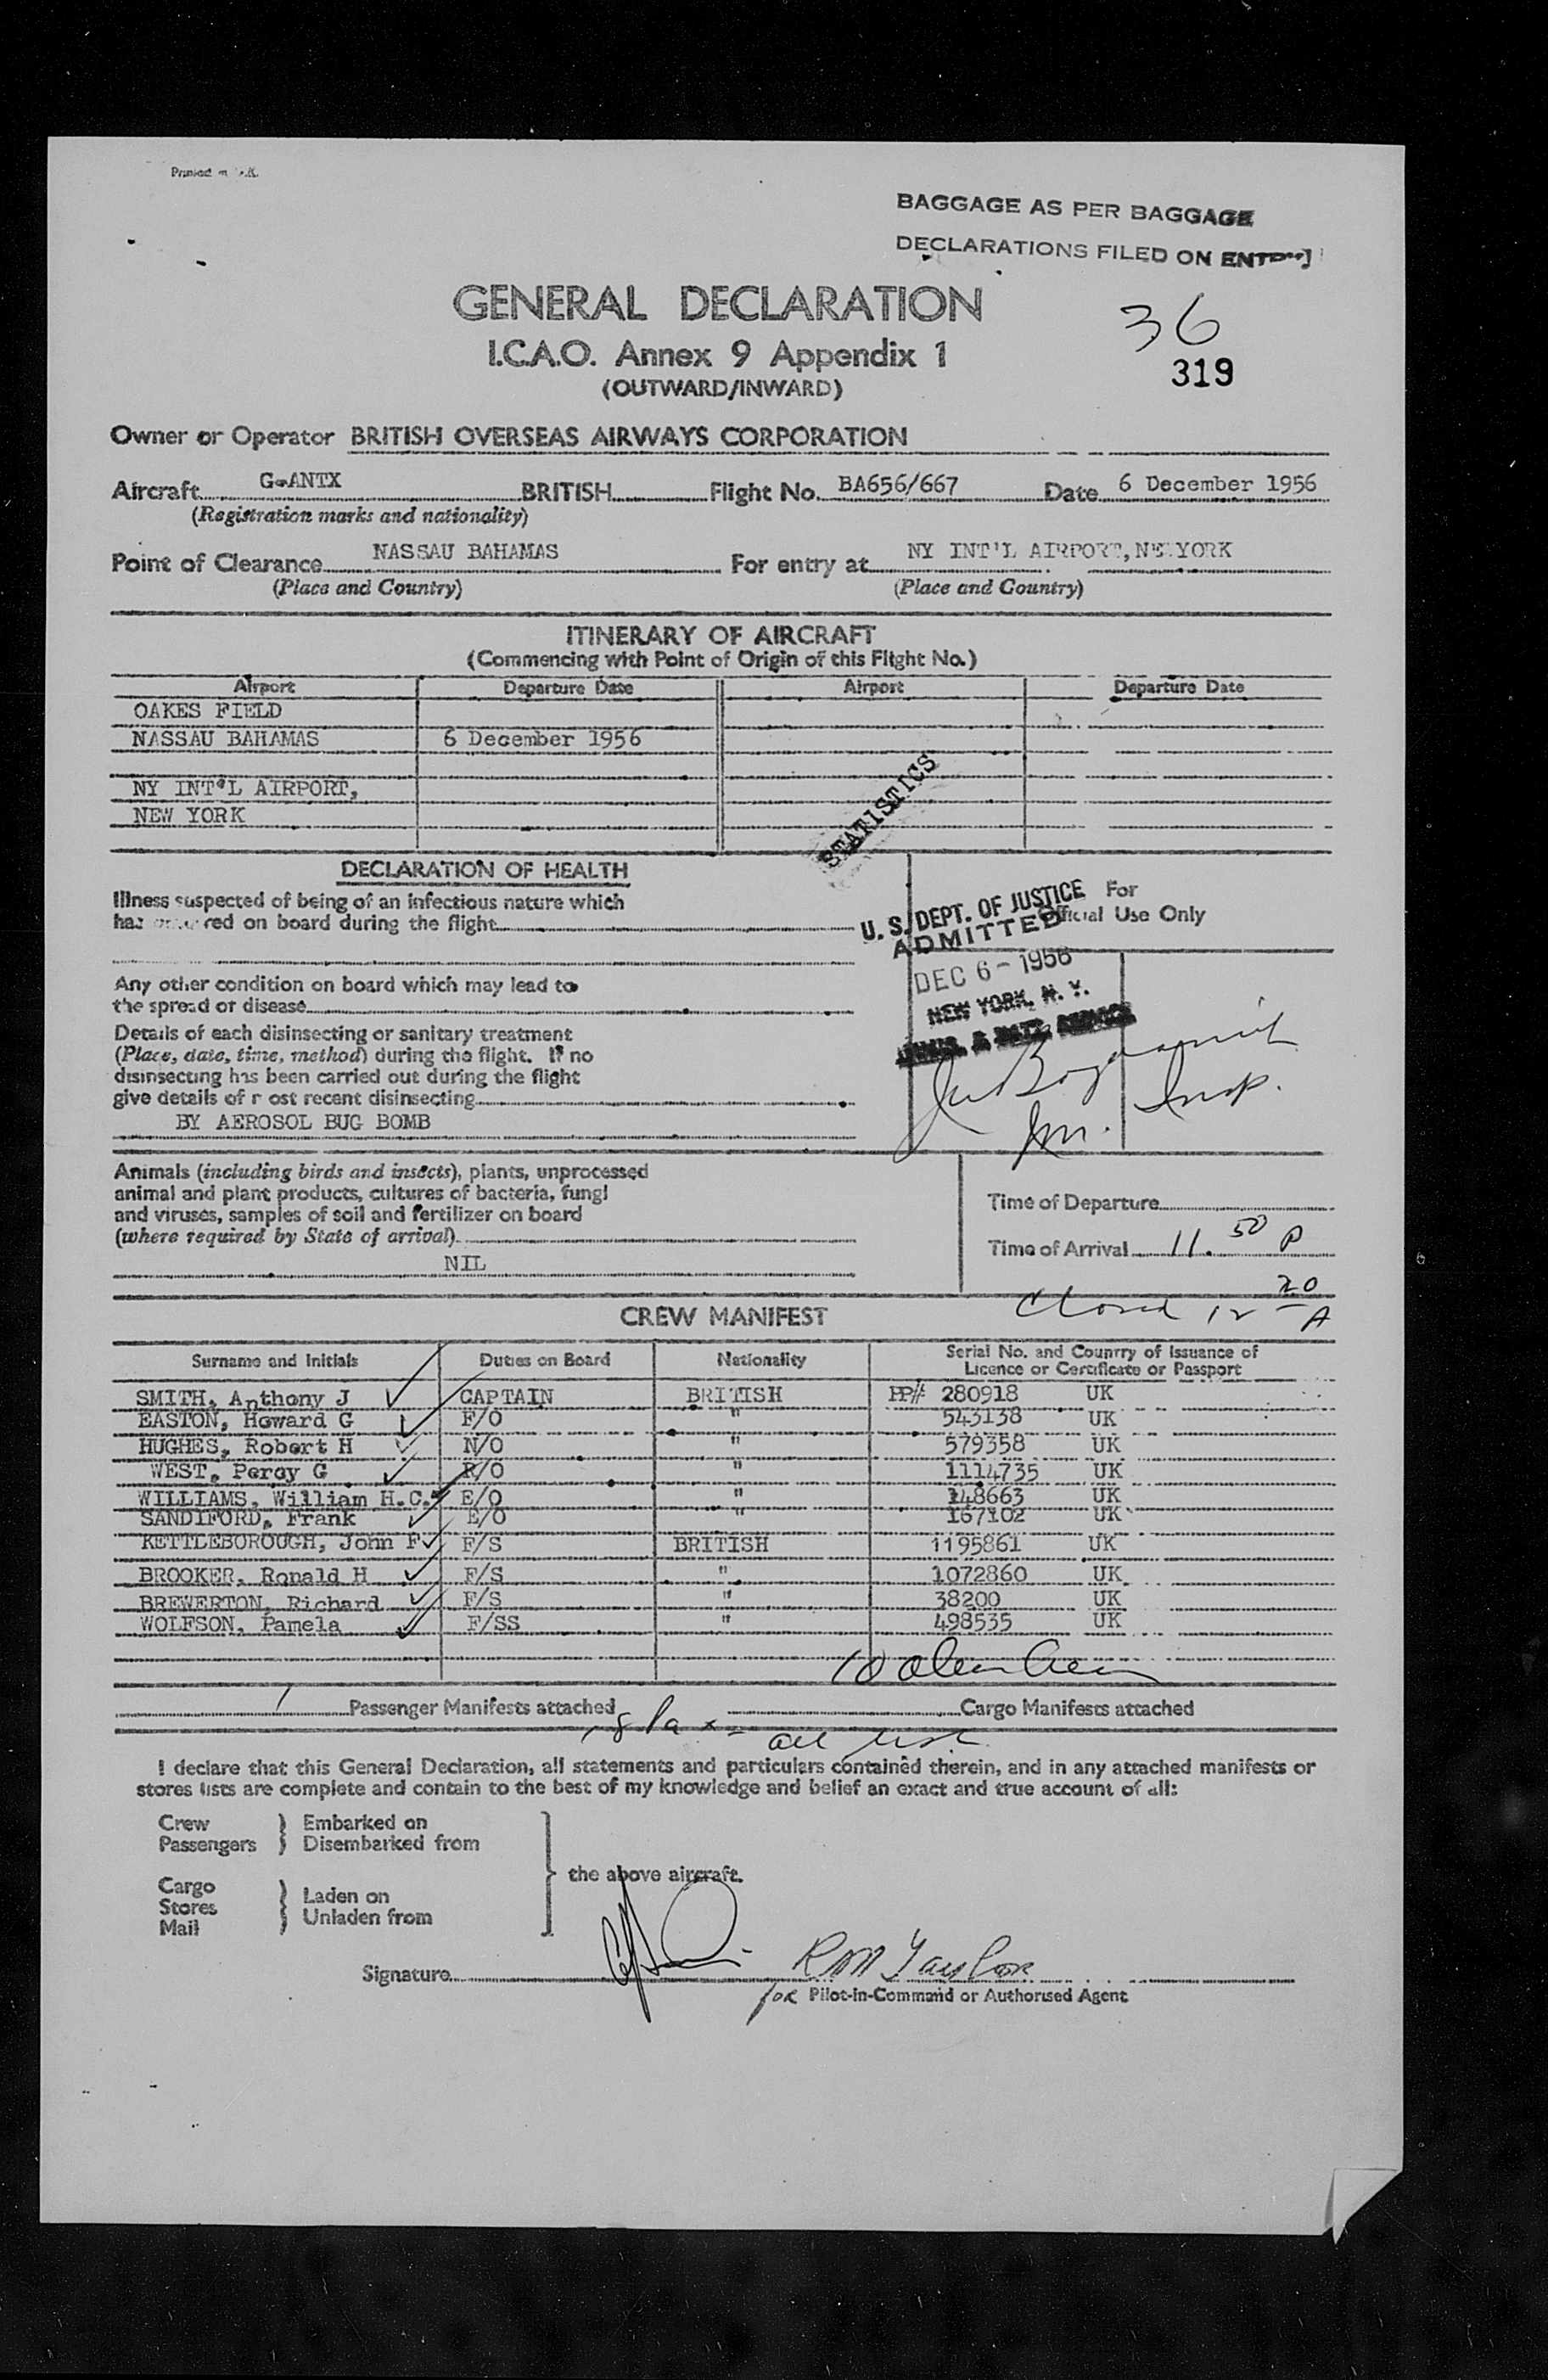 Printed in U.K.
BAGGAGE AS PER BAGGAGE
DECLARATIONS FILED ON ENTRY
GENERAL DECLARATION
36
I.C.A.O. Annex 9 Appendix 1
319
(OUTWARD/INWARD)
Owner or Operator BRITISH OVERSEAS AIRWAYS CORPORATION
Aircraft G-ANTX BRITISH Flight No. BA656/667 Date 6 December 1956
(Registration marks and nationality)
Point of Clearance NASSAU BAHAMAS For entry at NY INT'L AIRPORT, NEW YORK
(Place and Country) (Place and Country)
ITINERARY OF AIRCRAFT
(Commencing with Point of Origin of this Flight No.)
Airport Departure Date Airport Departure Date
OAKES FIELD
NASSAU BAHAMAS 6 December 1956
NY INT'L AIRPORT,
NEW YORK
STATISTICS
DECLARATION OF HEALTH
Illness suspected of being of an infectious nature which
has occurred on board during the flight
For
Official Use Only
U. S. DEPT. OF JUSTICE
ADMITTED
DEC 6 - 1956
NEW YORK, N. Y.
IMMIG. & NATZ. SERVICE
Any other condition on board which may lead to
the spread of disease
Details of each disinsecting or sanitary treatment
(Place, date, time, method) during the flight. If no
disinsecting has been carried out during the flight
give details of most recent disinsecting
BY AEROSOL BUG BOMB
Im. Insp.
Animals (including birds and insects), plants, unprocessed
animal and plant products, cultures of bacteria, fungi
and viruses, samples of soil and fertilizer on board
(where required by State of arrival)
NIL
Time of Departure
Time of Arrival 11.50 P
Closed 12 20 A
CREW MANIFEST
Surname and Initials Duties on Board Nationality Serial No. and Country of Issuance of
Licence or Certificate or Passport
SMITH, Anthony J CAPTAIN BRITISH PP# 280918 UK
EASTON, Howard G F/O " 543138 UK
HUGHES, Robert H N/O " 579358 UK
WEST, Percy G R/O " 1114735 UK
WILLIAMS, William H.C. E/O " 148663 UK
SANDIFORD, Frank E/O " 167102 UK
KETTLEBOROUGH, John F F/S BRITISH 1195861 UK
BROOKER, Ronald H F/S " 1072860 UK
BREWERTON, Richard F/S " 38200 UK
WOLFSON, Pamela F/SS " 498535 UK
10 alien crew
1 Passenger Manifests attached Cargo Manifests attached
I declare that this General Declaration, all statements and particulars contained therein, and in any attached manifests or
stores lists are complete and contain to the best of my knowledge and belief an exact and true account of all:
Crew Embarked on
Passengers Disembarked from
the above aircraft.
Cargo
Stores Laden on
Mail Unladen from
Signature RM Taylor
for Pilot-in-Command or Authorised Agent